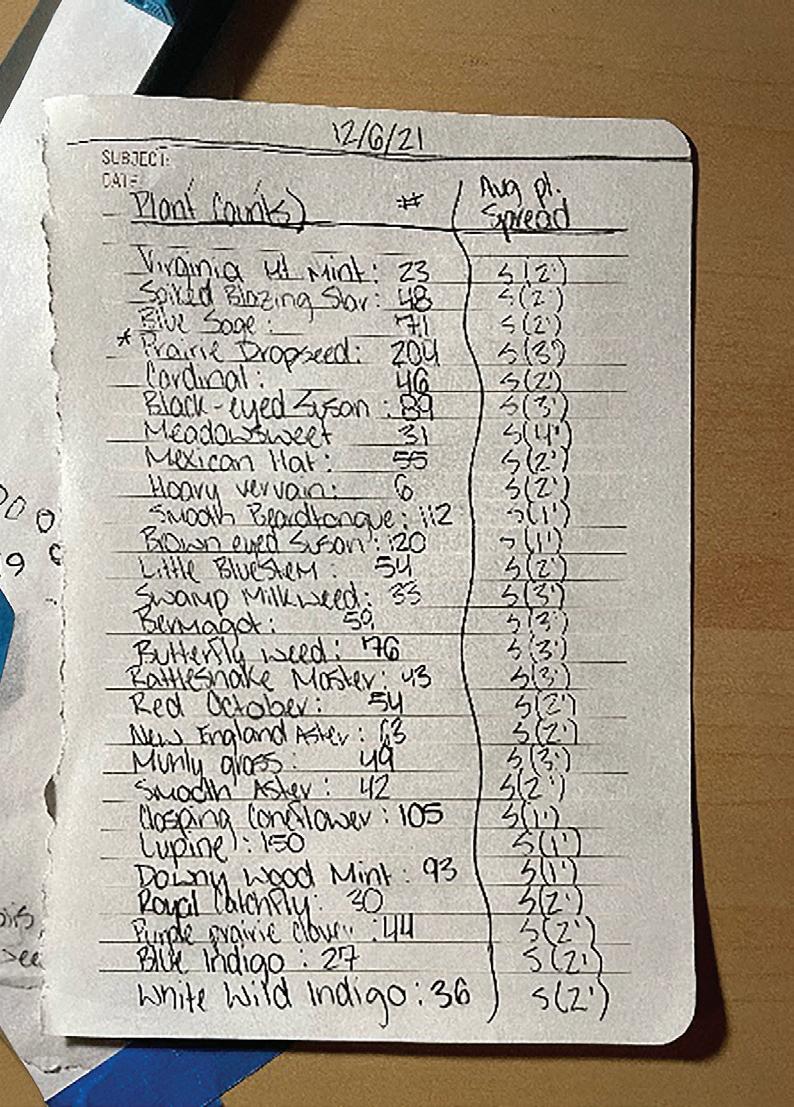 12/6/21
SUBJECT:
DATE:
Plant Counts) # Avg pl. Spread
Virginia Mt Mint: 23 S(2')
Spiked Blazing Star: 48 S(2')
Blue Sage: 71 S(2')
* Prairie Dropseed: 204 S(3')
Cardinal: 46 S(2')
Black-eyed Susan: 89 S(3')
Meadowsweet 31 S(4')
Mexican Hat: 55 S(2')
Hoary vervain: 6 S(2')
Smooth Beardtongue: 112 S(1')
Brown eyed Susan: 120 S(1')
Little Bluestem: 54 S(2')
Swamp Milkweed: 33 S(3')
Bermagot: 59 S(3')
Butterfly weed: 76 S(3')
Rattlesnake Master: 43 S(3')
Red October: 54 S(2')
New England Aster: 63 S(2')
Munly grass: 49 S(3')
Smooth Aster: 42 S(2')
Clasping Coneflower: 105 S(1')
Lupine: 150 S(1')
Downy Wood Mint: 93 S(1')
Royal Catchfly: 30 S(2')
Purple prairie clover: 44 S(2')
Blue Indigo: 27 S(2')
White Wild Indigo: 36 S(2')